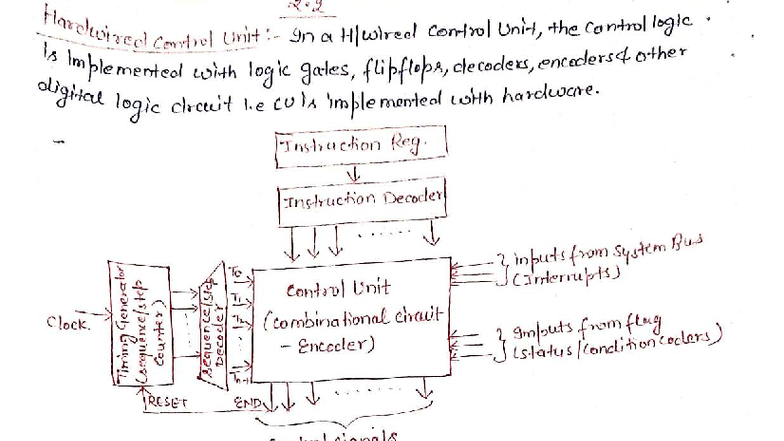 2.9
Hardwired Control Unit :- In a H/wired Control Unit, the Control logic
is Implemented with logic gates, flipflops, decoders, encoders & other
digital logic circuit i.e CU is implemented with hardware.
Instruction Reg.
Instruction Decoder
Timing Generator
(sequence/step
Counter)
Sequence/step
Decoder
T0
T1
T2
Tn-1
Control Unit
(combinational circuit
- Encoder)
inputs from System Bus
(Interrupts)
Clock.
Inputs from flag
(status/condition coders)
RESET
END
Control signals